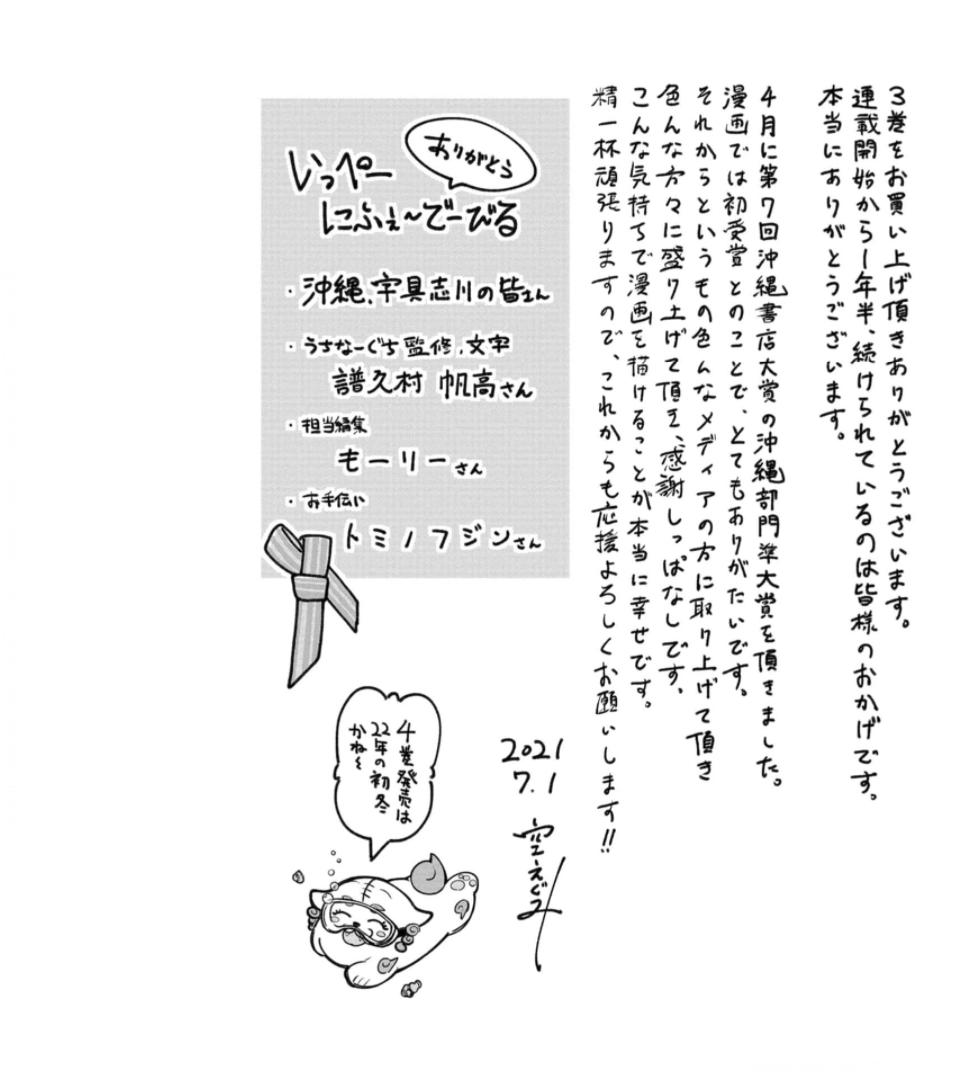 3巻をお買い上げ頂きありがとうございます。
連載開始から1年半、続けられているのは皆様のおかげです。
本当にありがとうございます。
4月に第7回沖縄書店大賞の沖縄部門準大賞を頂きました。
漫画では初受賞とのことで、とてもありがたいです。
それからというもの色んなメディアの方に取り上げて頂き
色んな方々に盛り上げて頂き、感謝しっぱなしです。
こんな気持ちで漫画を描けることが本当に幸せです。
精一杯頑張りますので、これからも応援よろしくお願いします!!
2021
7.1
空えぐみ
ありがとう
いっぺー
にふぇ〜でーびる
・沖縄、宇具志川の皆さん
・うちなーぐち監修、文字
譜久村 帆高さん
・担当編集
もーりーさん
・お手伝い
トミノフジンさん
4巻発売は
22年の初冬
かね〜